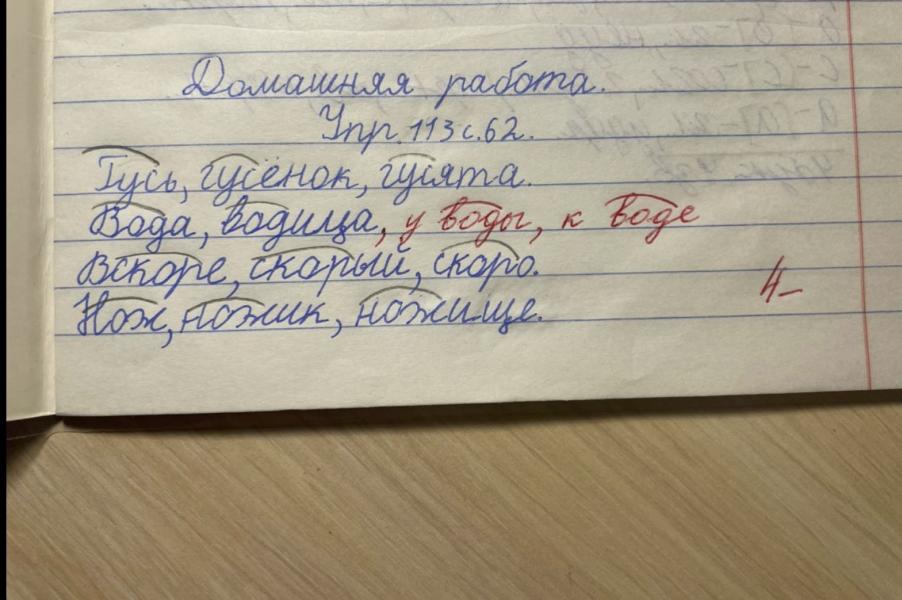 Домашняя работа.
Упр. 113 с. 62.
Гусь, гусёнок, гусята.
Вода, водица, у воды, к воде
Вскоре, скорый, скоро.
Нож, ножик, ножище.
4-